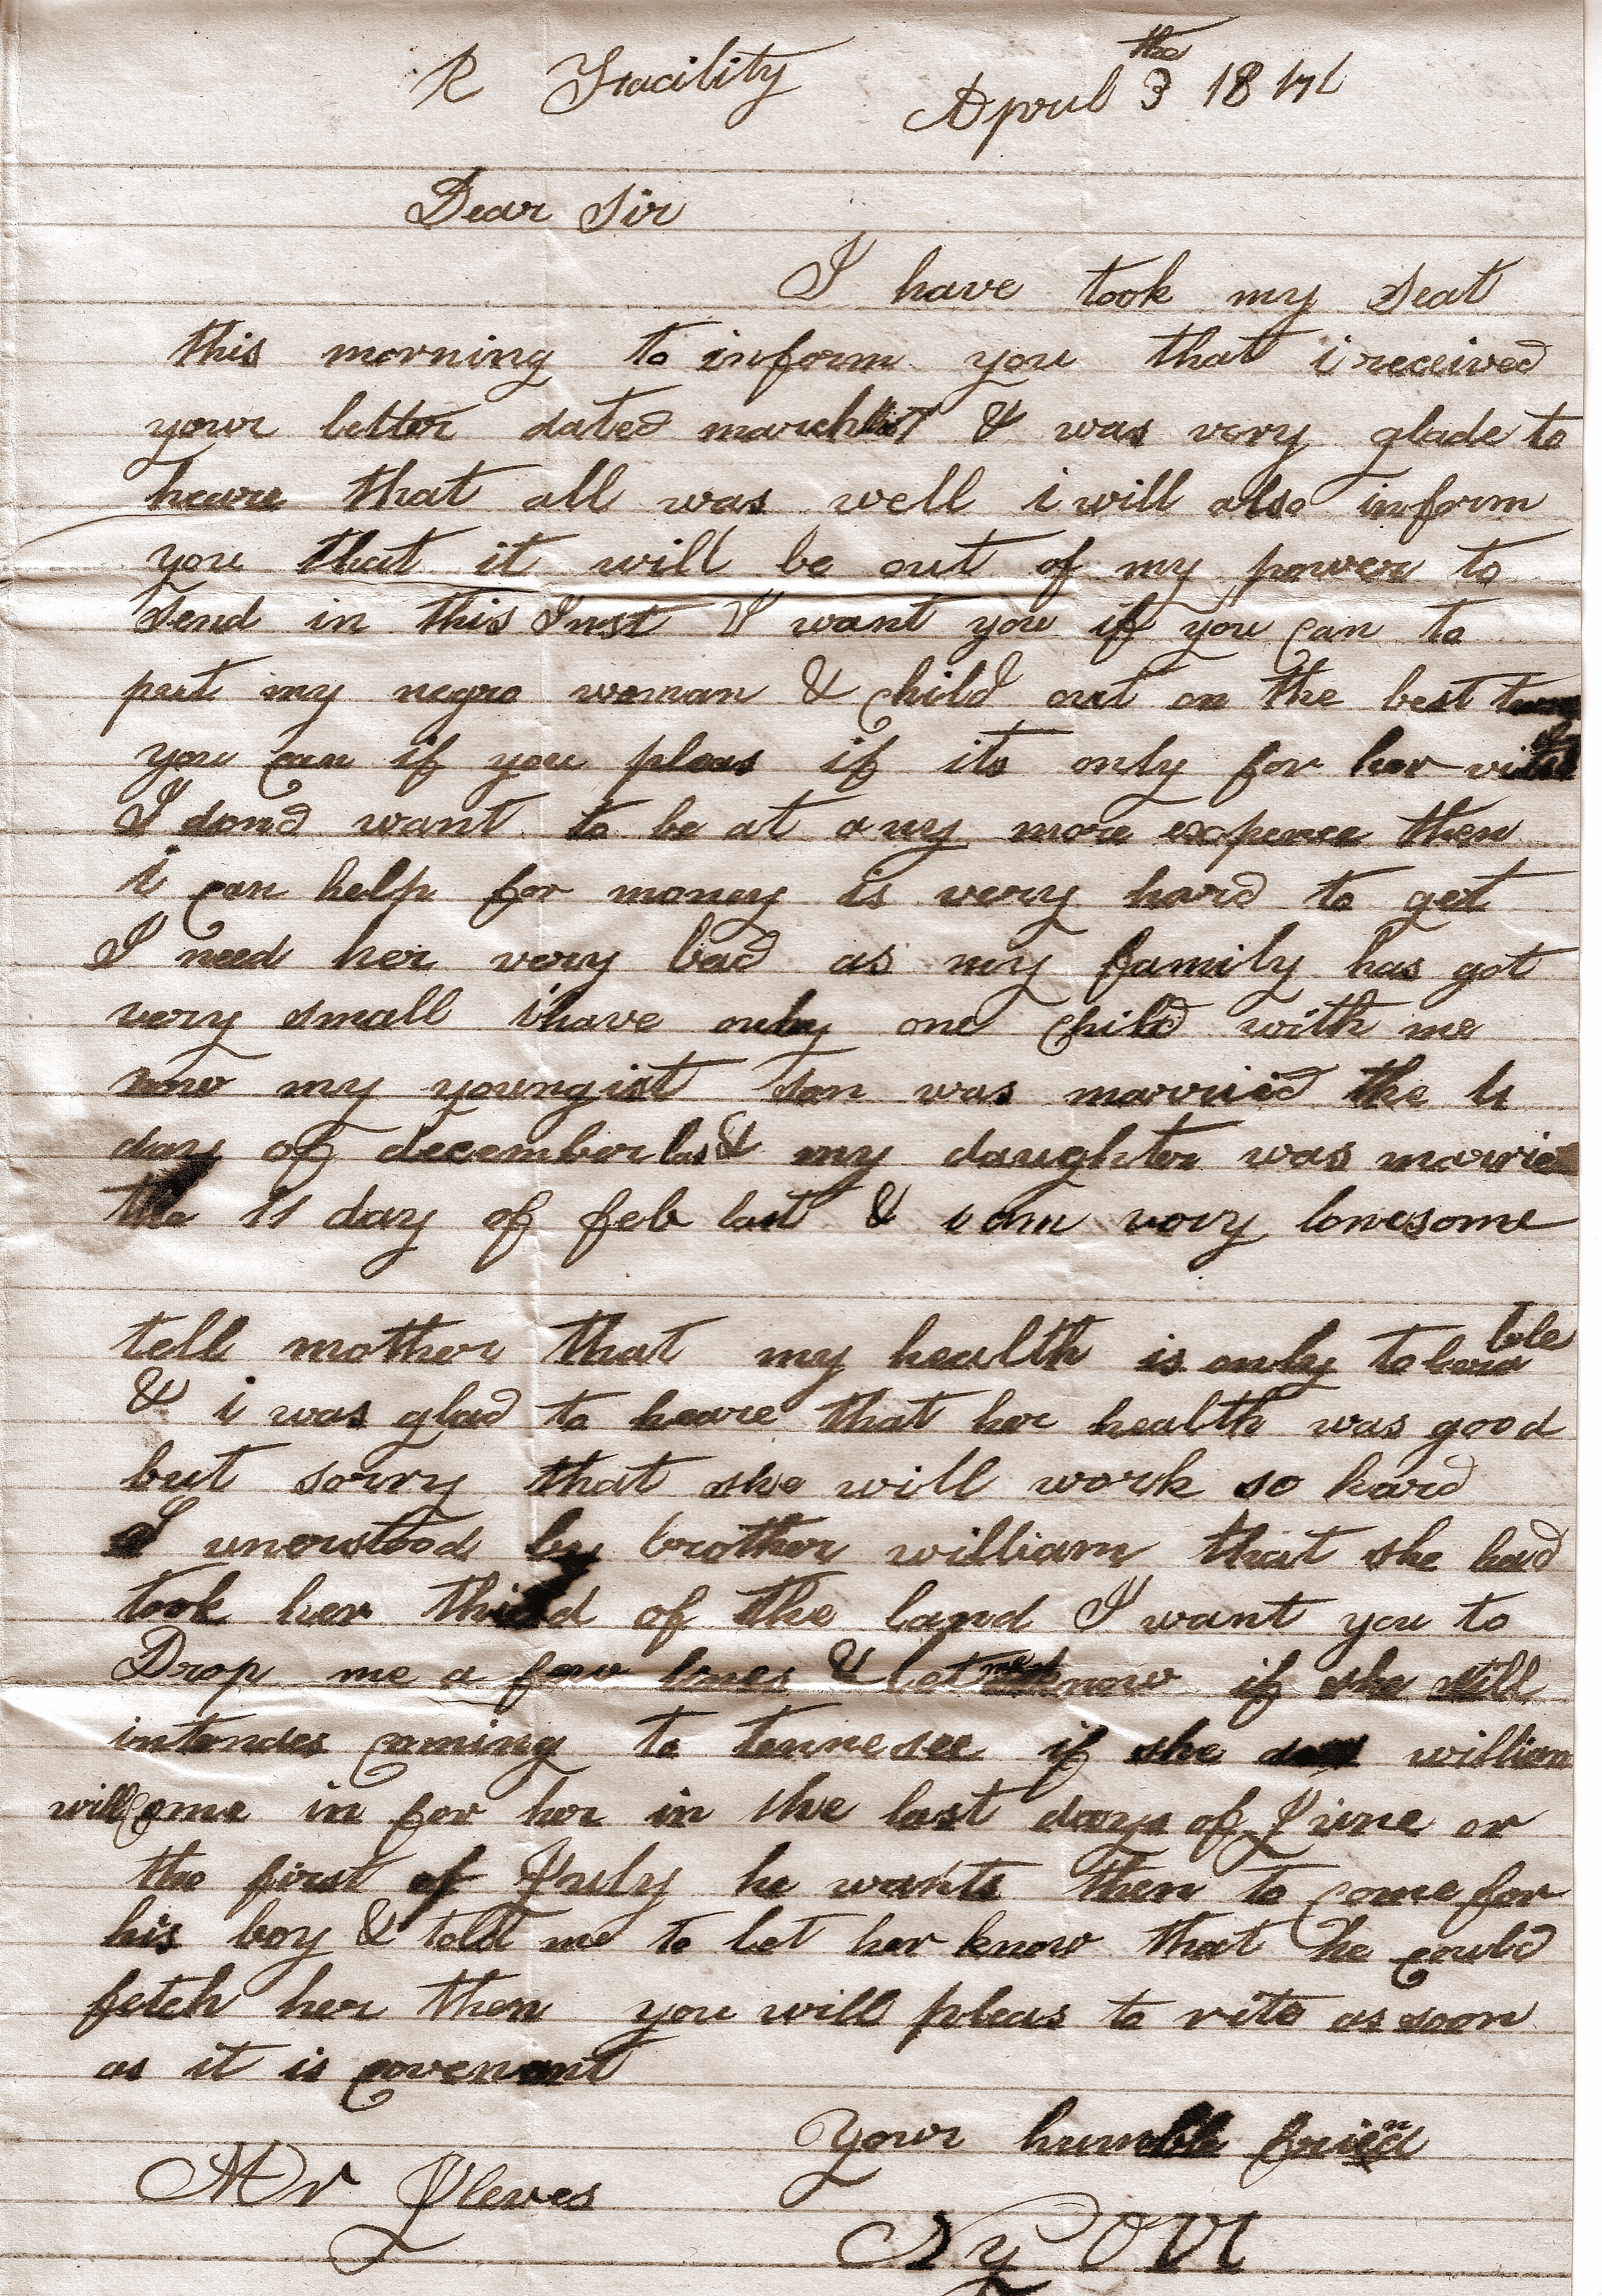 R Facility April 3 the 18
Dear Sir
I have took my Seat
this morning to inform you that i received
your letter dated march & was very glade to
heare that all was well i will also inform
you that it will be out of my power to
Send in this Inst I want you if you can to
put my negro woman & child out on the best
you can if you pleas if its only for her
I dond want to be at any more expence then
i can help for money is very hard to get
I need her very bad as my family has got
very small i have only one child with me
now my youngist son was married the
day of december last my daughter was married
the 11 day of feb last & i am very lonesome
tell mother that my health is only tolerable
& i was glad to heare that her health was good
but sorry that she will work so hard
I understood by brother william that she had
took her third of the land I want you to
Drop me a few lines & let me know if she still
intendes coming to tennesee if she does william
will come in for her in the last days of June or
the first of July he wants then to come for
his boy & told me to let her know that he could
fetch her then you will pleas to rite as soon
as it is covenant
Your humble friend
Mr